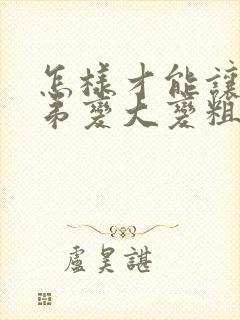 怎樣才能讓
弟變大變粗
盧昊諶